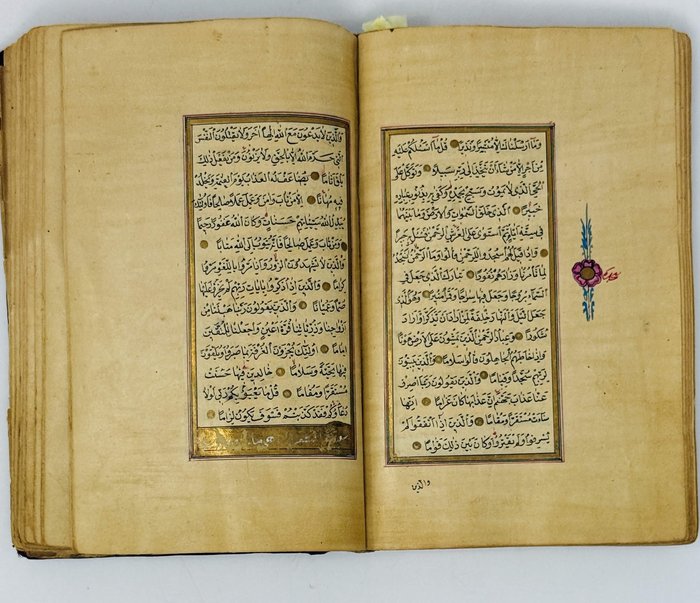 وَمَا اَرْسَلْنَاكَ اِلَّا مُبَشِّرًا وَنَذِيرًا قُلْ مَا اَسْئَلُكُمْ عَلَيْهِ
مِنْ اَجْرٍ اِلَّا مَنْ شَاءَ اَنْ يَتَّخِذَ اِلٰى رَبِّهِ سَبِيلًا وَتَوَكَّلْ عَلَى
الْحَيِّ الَّذِي لَا يَمُوتُ وَسَبِّحْ بِحَمْدِهِ وَكَفٰى بِهِ بِذُنُوبِ عِبَادِهِ
خَبِيرًا اَلَّذِي خَلَقَ السَّمٰوَاتِ وَالْاَرْضَ وَمَا بَيْنَهُمَا
فِي سِتَّةِ اَيَّامٍ ثُمَّ اسْتَوٰى عَلَى الْعَرْشِ الرَّحْمٰنُ فَسْئَلْ بِهِ خَبِيرًا
وَاِذَا قِيلَ لَهُمُ اسْجُدُوا لِلرَّحْمٰنِ قَالُوا وَمَا الرَّحْمٰنُ اَنَسْجُدُ
لِمَا تَأْمُرُنَا وَزَادَهُمْ نُفُورًا تَبَارَكَ الَّذِي جَعَلَ فِي
السَّمَاءِ بُرُوجًا وَجَعَلَ فِيهَا سِرَاجًا وَقَمَرًا مُنِيرًا وَهُوَ الَّذِي
جَعَلَ الَّيْلَ وَالنَّهَارَ خِلْفَةً لِمَنْ اَرَادَ اَنْ يَذَّكَّرَ اَوْ اَرَادَ
شُكُورًا وَعِبَادُ الرَّحْمٰنِ الَّذِينَ يَمْشُونَ عَلَى الْاَرْضِ هَوْنًا
وَاِذَا خَاطَبَهُمُ الْجَاهِلُونَ قَالُوا سَلَامًا وَالَّذِينَ يَبِيتُونَ
لِرَبِّهِمْ سُجَّدًا وَقِيَامًا وَالَّذِينَ يَقُولُونَ رَبَّنَا اصْرِفْ
عَنَّا عَذَابَ جَهَنَّمَ اِنَّ عَذَابَهَا كَانَ غَرَامًا اِنَّهَا
سَاءَتْ مُسْتَقَرًّا وَمُقَامًا وَالَّذِينَ اِذَا اَنْفَقُوا لَمْ
يُسْرِفُوا وَلَمْ يَقْتُرُوا وَكَانَ بَيْنَ ذٰلِكَ قَوَامًا
والذين
وَالَّذِينَ لَا يَدْعُونَ مَعَ اللّٰهِ اِلٰهًا اٰخَرَ وَلَا يَقْتُلُونَ النَّفْسَ
الَّتِي حَرَّمَ اللّٰهُ اِلَّا بِالْحَقِّ وَلَا يَزْنُونَ وَمَنْ يَفْعَلْ ذٰلِكَ
يَلْقَ اَثَامًا يُضَاعَفْ لَهُ الْعَذَابُ يَوْمَ الْقِيٰمَةِ وَيَخْلُدْ
فِيهِ مُهَانًا اِلَّا مَنْ تَابَ وَاٰمَنَ وَعَمِلَ عَمَلًا صَالِحًا فَاُولٰئِكَ
يُبَدِّلُ اللّٰهُ سَيِّئَاتِهِمْ حَسَنَاتٍ وَكَانَ اللّٰهُ غَفُورًا رَحِيمًا
وَمَنْ تَابَ وَعَمِلَ صَالِحًا فَاِنَّهُ يَتُوبُ اِلَى اللّٰهِ مَتَابًا
وَالَّذِينَ لَا يَشْهَدُونَ الزُّورَ وَاِذَا مَرُّوا بِاللَّغْوِ مَرُّوا
كِرَامًا وَالَّذِينَ اِذَا ذُكِّرُوا بِاٰيَاتِ رَبِّهِمْ لَمْ يَخِرُّوا عَلَيْهَا
صُمًّا وَعُمْيَانًا وَالَّذِينَ يَقُولُونَ رَبَّنَا هَبْ لَنَا مِنْ
اَزْوَاجِنَا وَذُرِّيَّاتِنَا قُرَّةَ اَعْيُنٍ وَاجْعَلْنَا لِلْمُتَّقِينَ
اِمَامًا اُولٰئِكَ يُجْزَوْنَ الْغُرْفَةَ بِمَا صَبَرُوا وَيُلَقَّوْنَ
فِيهَا تَحِيَّةً وَسَلَامًا خَالِدِينَ فِيهَا حَسُنَتْ
مُسْتَقَرًّا وَمُقَامًا قُلْ مَا يَعْبَؤُا بِكُمْ رَبِّي لَوْلَا
دُعَاؤُكُمْ فَقَدْ كَذَّبْتُمْ فَسَوْفَ يَكُونُ لِزَامًا